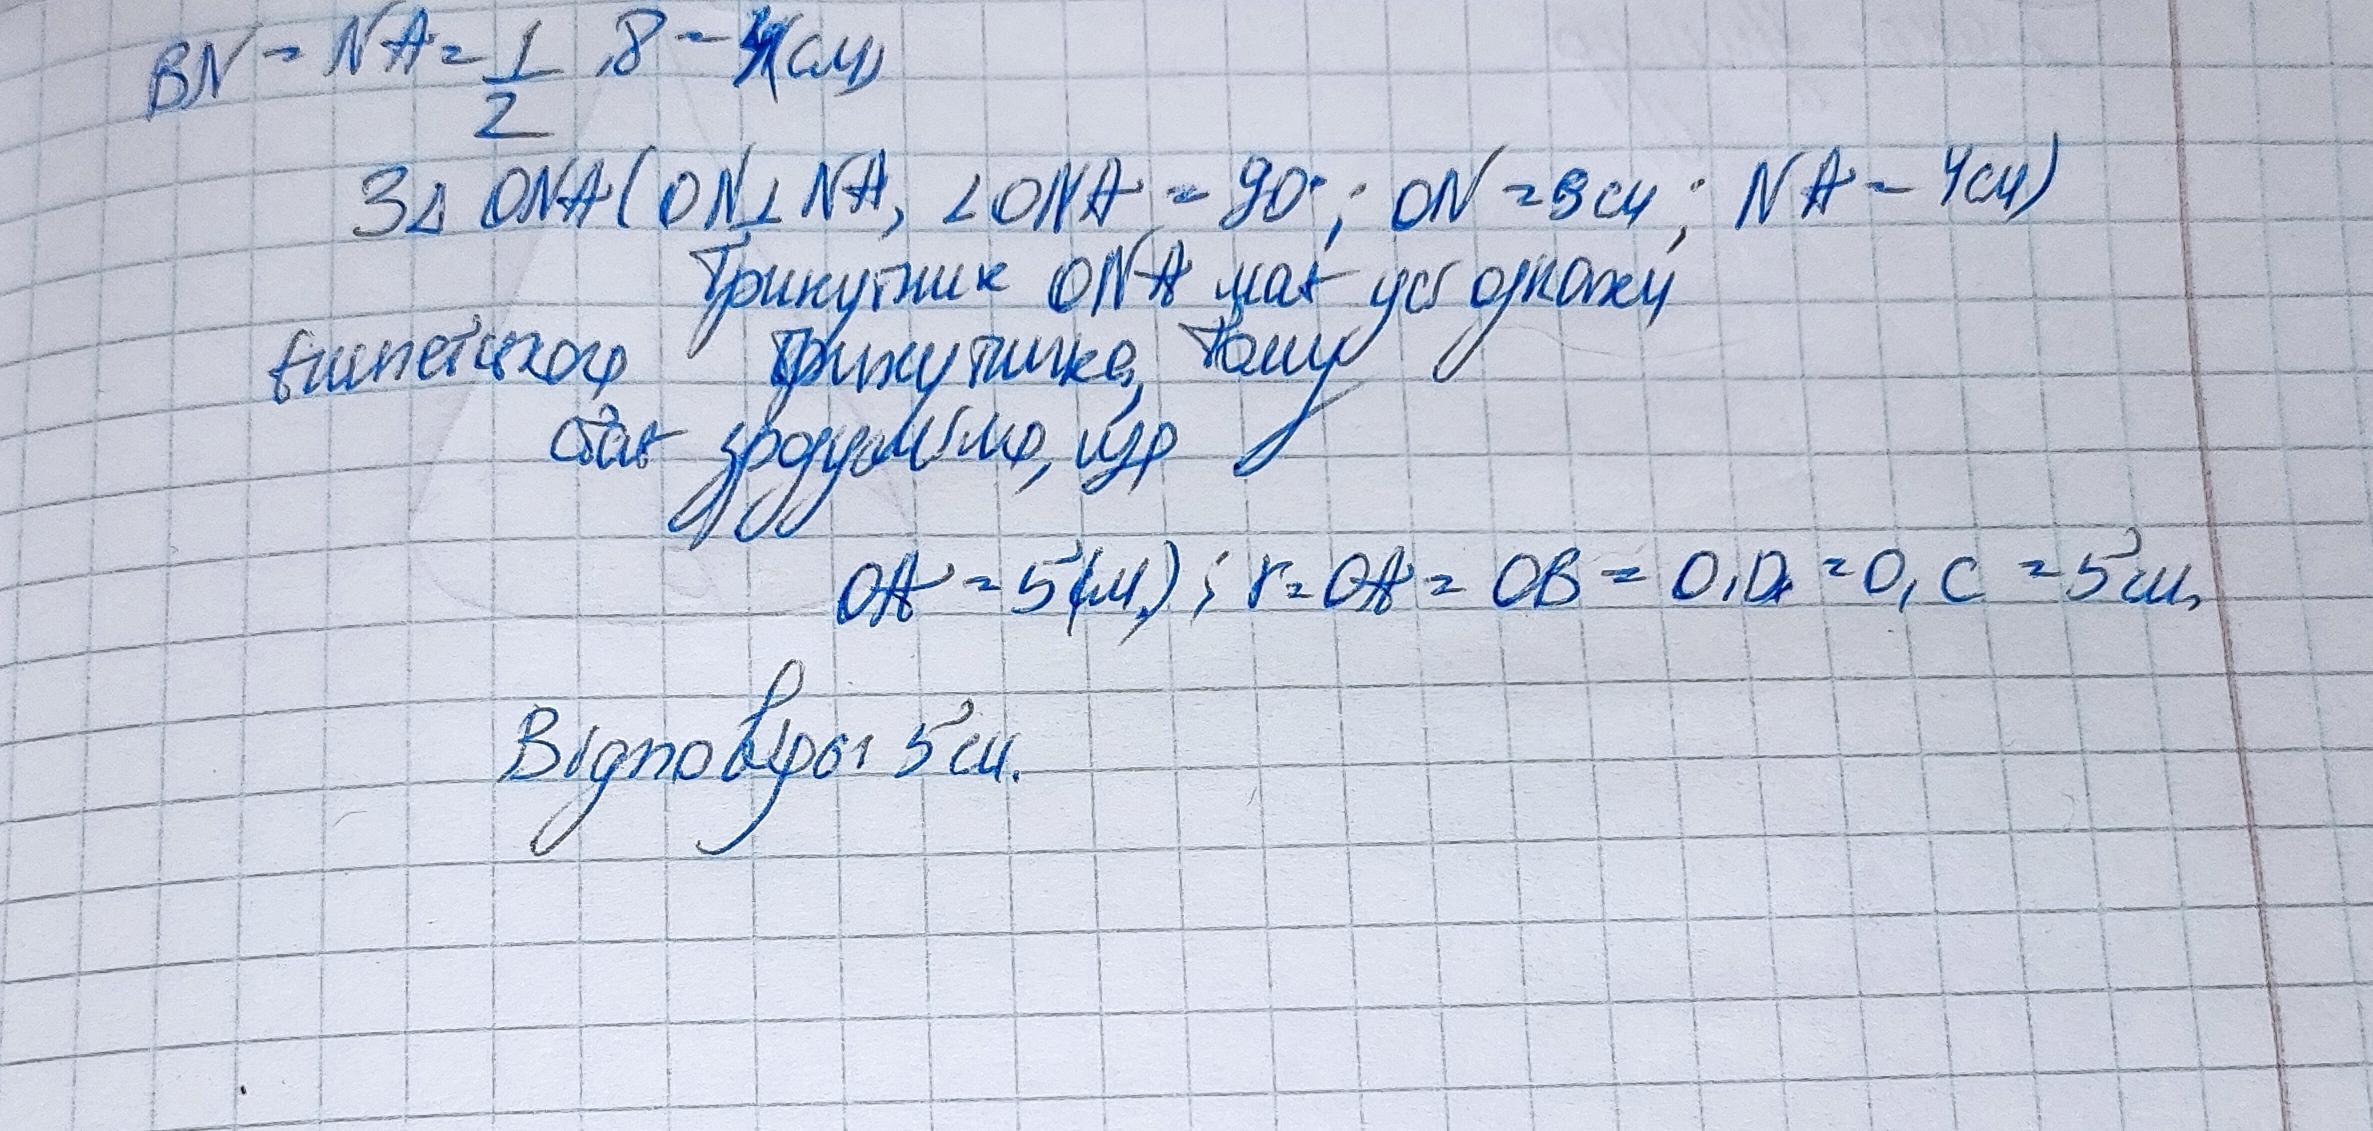 BN = NA = 1/2 · 8 = 4(см)
З Δ ONA (ON⊥NA, ∠ONA = 90°; ON = 3 см; NA = 4см)
Трикутник ONA має усі ознаки
Єгипетского трикутника, тому
стає зрозуміло, що
OA = 5(см); r = OA = OB = O₁D = O₁C = 5 см.
Відповідь: 5 см.